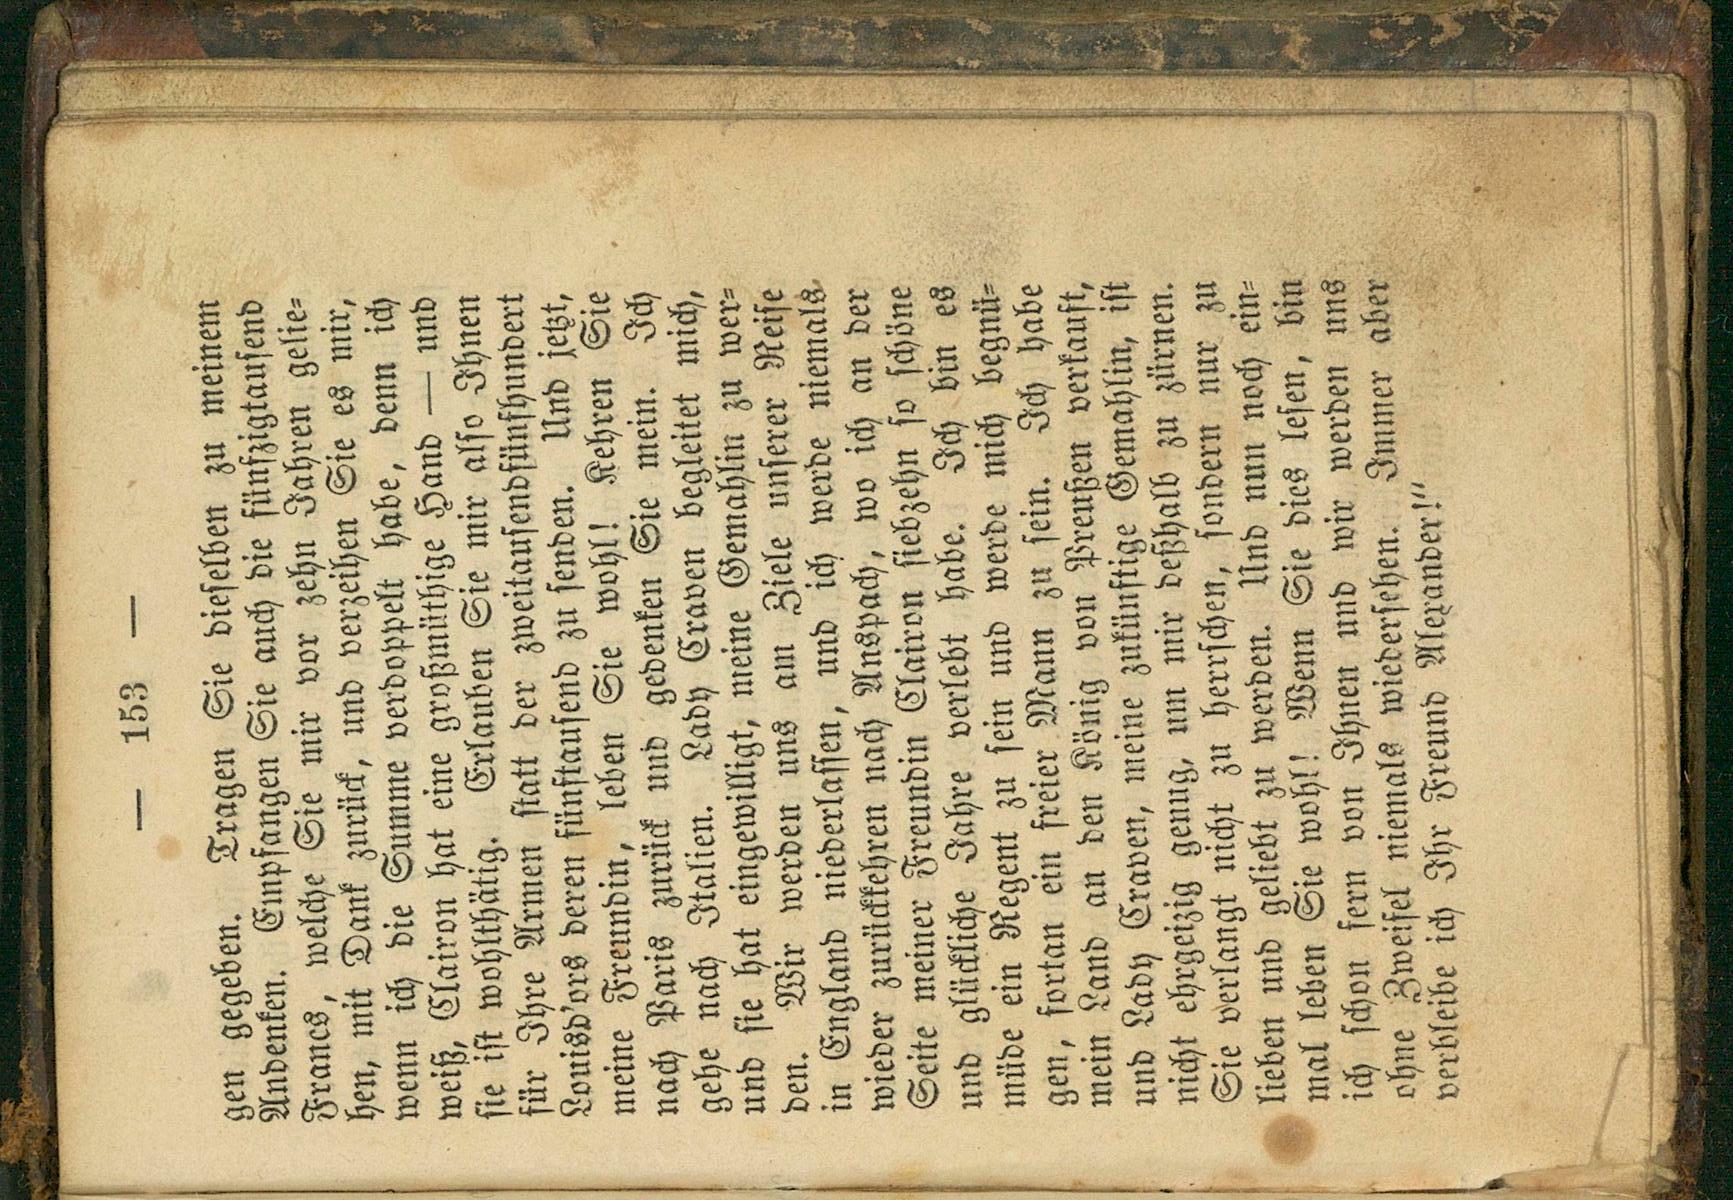 — 153 —
gen gegeben. Tragen Sie dieselben zu meinem
Andenken. Empfangen Sie auch die fünfzigtausend
Francs, welche Sie mir vor zehn Jahren gelie-
hen, mit Dank zurück, und verzeihen Sie es mir,
wenn ich die Summe verdoppelt habe, denn ich
weiß, Clairon hat eine großmüthige Hand — und
sie ist wohlthätig. Erlauben Sie mir also Ihnen
für Ihre Armen statt der zweitausendfünfhundert
Louisd'ors deren fünftausend zu senden. Und jetzt,
meine Freundin, leben Sie wohl! Kehren Sie
nach Paris zurück und gedenken Sie mein. Ich
gehe nach Italien. Lady Craven begleitet mich,
und sie hat eingewilligt, meine Gemahlin zu wer-
den. Wir werden uns am Ziele unserer Reise
in England niederlassen, und ich werde niemals
wieder zurückkehren nach Anspach, wo ich an der
Seite meiner Freundin Clairon siebzehn so schöne
und glückliche Jahre verlebt habe. Ich bin es
müde ein Regent zu sein und werde mich begnü-
gen, fortan ein freier Mann zu sein. Ich habe
mein Land an den König von Preußen verkauft,
und Lady Craven, meine zukünftige Gemahlin, ist
nicht ehrgeizig genug, um mir deßhalb zu zürnen.
Sie verlangt nicht zu herrschen, sondern nur zu
lieben und geliebt zu werden. Und nun noch ein-
mal leben Sie wohl! Wenn Sie dies lesen, bin
ich schon fern von Ihnen und wir werden uns
ohne Zweifel niemals wiedersehen. Immer aber
verbleibe ich Ihr Freund Alexander!“